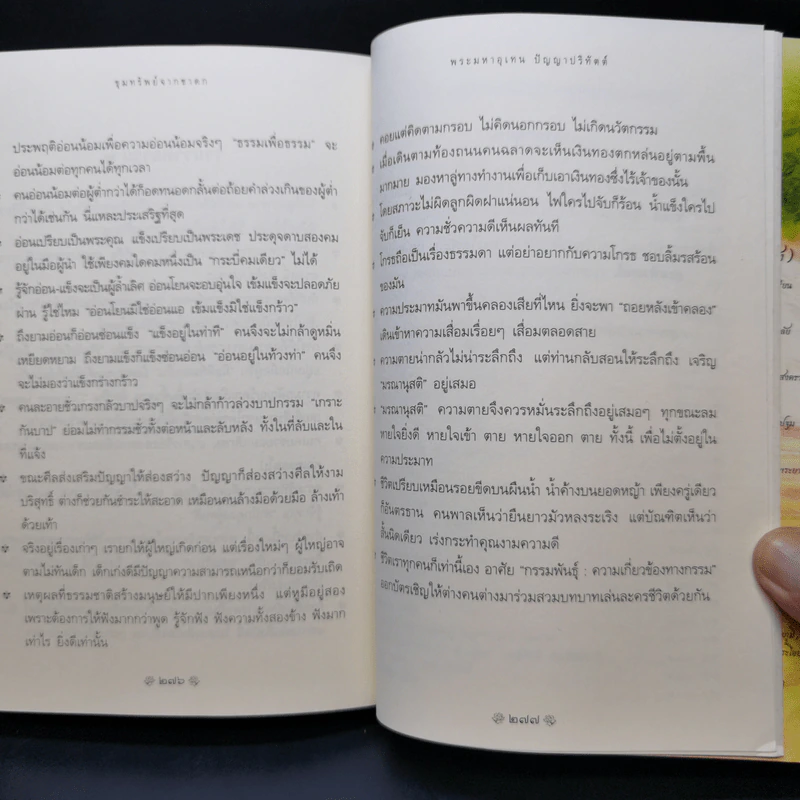 ขุมทรัพย์จากชาดก
ประพฤติอ่อนน้อมเพื่อความอ่อนน้อมจริงๆ "ธรรมเพื่อธรรม" จะ
อ่อนน้อมต่อทุกคนได้ทุกเวลา
คนอ่อนน้อมต่อผู้ต่ำกว่าได้ก็อดทนอดกลั้นต่อถ้อยคำล่วงเกินของผู้ต่ำ
กว่าได้เช่นกัน นี่แหละประเสริฐที่สุด
อ่อนเปรียบเป็นพระคุณ แข็งเปรียบเป็นพระเดช ประดุจดาบสองคม
อยู่ในมือผู้นำ ใช้เพียงคมใดคมหนึ่งเป็น "กระบี่คมเดียว" ไม่ได้
รู้จักอ่อน-แข็งจะเป็นผู้ล้ำเลิศ อ่อนโยนจะอบอุ่นใจ เข้มแข็งจะปลอดภัย
ผ่าน รู้ใช่ไหม "อ่อนโยนมิใช่อ่อนแอ เข้มแข็งมิใช่แข็งกร้าว"
ถึงยามอ่อนก็อ่อนซ่อนแข็ง "แข็งอยู่ในท่าที" คนจึงจะไม่กล้าดูหมิ่น
เหยียดหยาม ถึงยามแข็งก็แข็งซ่อนอ่อน "อ่อนอยู่ในท้วงท่า" คนจึง
จะไม่มองว่าแข็งกร่างกร้าว
คนละอายชั่วเกรงกลัวบาปจริงๆ จะไม่กล้าก้าวล่วงบาปกรรม "เกราะ
กันบาป" ย่อมไม่ทำกรรมชั่วทั้งต่อหน้าและลับหลัง ทั้งในที่ลับและใน
ที่แจ้ง
ขณะศีลส่งเสริมปัญญาให้ส่องสว่าง ปัญญาก็ส่องสว่างศีลให้งาม
บริสุทธิ์ ต่างก็ช่วยกันชำระให้สะอาด เหมือนคนล้างมือด้วยมือ ล้างเท้า
ด้วยเท้า
จริงอยู่เรื่องเก่าๆ เรายกให้ผู้ใหญ่เกิดก่อน แต่เรื่องใหม่ๆ ผู้ใหญ่อาจ
ตามไม่ทันเด็ก เด็กเก่งดีมีปัญญาความสามารถเหนือกว่าก็ยอมรับเถิด
เหตุผลที่ธรรมชาติสร้างมนุษย์ให้มีปากเพียงหนึ่ง แต่หูมีอยู่สอง
เพราะต้องการให้ฟังมากกว่าพูด รู้จักฟัง ฟังความทั้งสองข้าง ฟังมาก
เท่าไร ยิ่งดีเท่านั้น
๒๗๖
พระมหาอุเทน ปัญญาปริทัตต์
คอยแต่คิดตามกรอบ ไม่คิดนอกกรอบ ไม่เกิดนวัตกรรม
เมื่อเดินตามท้องถนนคนฉลาดจะเห็นเงินทองตกหล่นอยู่ตามพื้น
มากมาย มองหาลู่ทางทำงานเพื่อเก็บเอาเงินทองซึ่งไร้เจ้าของนั้น
โดยสภาวะไม่ผิดลูกผิดฝาแน่นอน ไฟใครไปจับก็ร้อน น้ำแข็งใครไป
จับก็เย็น ความชั่วความดีเห็นผลทันที
โกรธถือเป็นเรื่องธรรมดา แต่อย่าอยากกับความโกรธ ชอบลิ้มรสร้อน
ของมัน
ความประมาทมันพาขึ้นคลองเสียที่ไหน ยิ่งจะพา "ถอยหลังเข้าคลอง"
เดินเข้าหาความเสื่อมเรื่อยๆ เสื่อมตลอดสาย
ความตายน่ากลัวไม่น่าระลึกถึง แต่ท่านกลับสอนให้ระลึกถึง เจริญ
"มรณานุสติ" อยู่เสมอ
"มรณานุสติ" ความตายจึงควรหมั่นระลึกถึงอยู่เสมอๆ ทุกขณะลม
หายใจยิ่งดี หายใจเข้า ตาย หายใจออก ตาย ทั้งนี้ เพื่อไม่ตั้งอยู่ใน
ความประมาท
ชีวิตเปรียบเหมือนรอยขีดบนผืนน้ำ น้ำค้างบนยอดหญ้า เพียงครู่เดียว
ก็อันตรธาน คนพาลเห็นว่ายืนยาวมัวหลงระเริง แต่บัณฑิตเห็นว่า
สั้นนิดเดียว เร่งกระทำคุณงามความดี
ชีวิตเราทุกคนก็เท่านี้เอง อาศัย "กรรมพันธุ์ : ความเกี่ยวข้องทางกรรม"
ออกบัตรเชิญให้ต่างคนต่างมาร่วมสวมบทบาทเล่นละครชีวิตด้วยกัน
๒๗๗